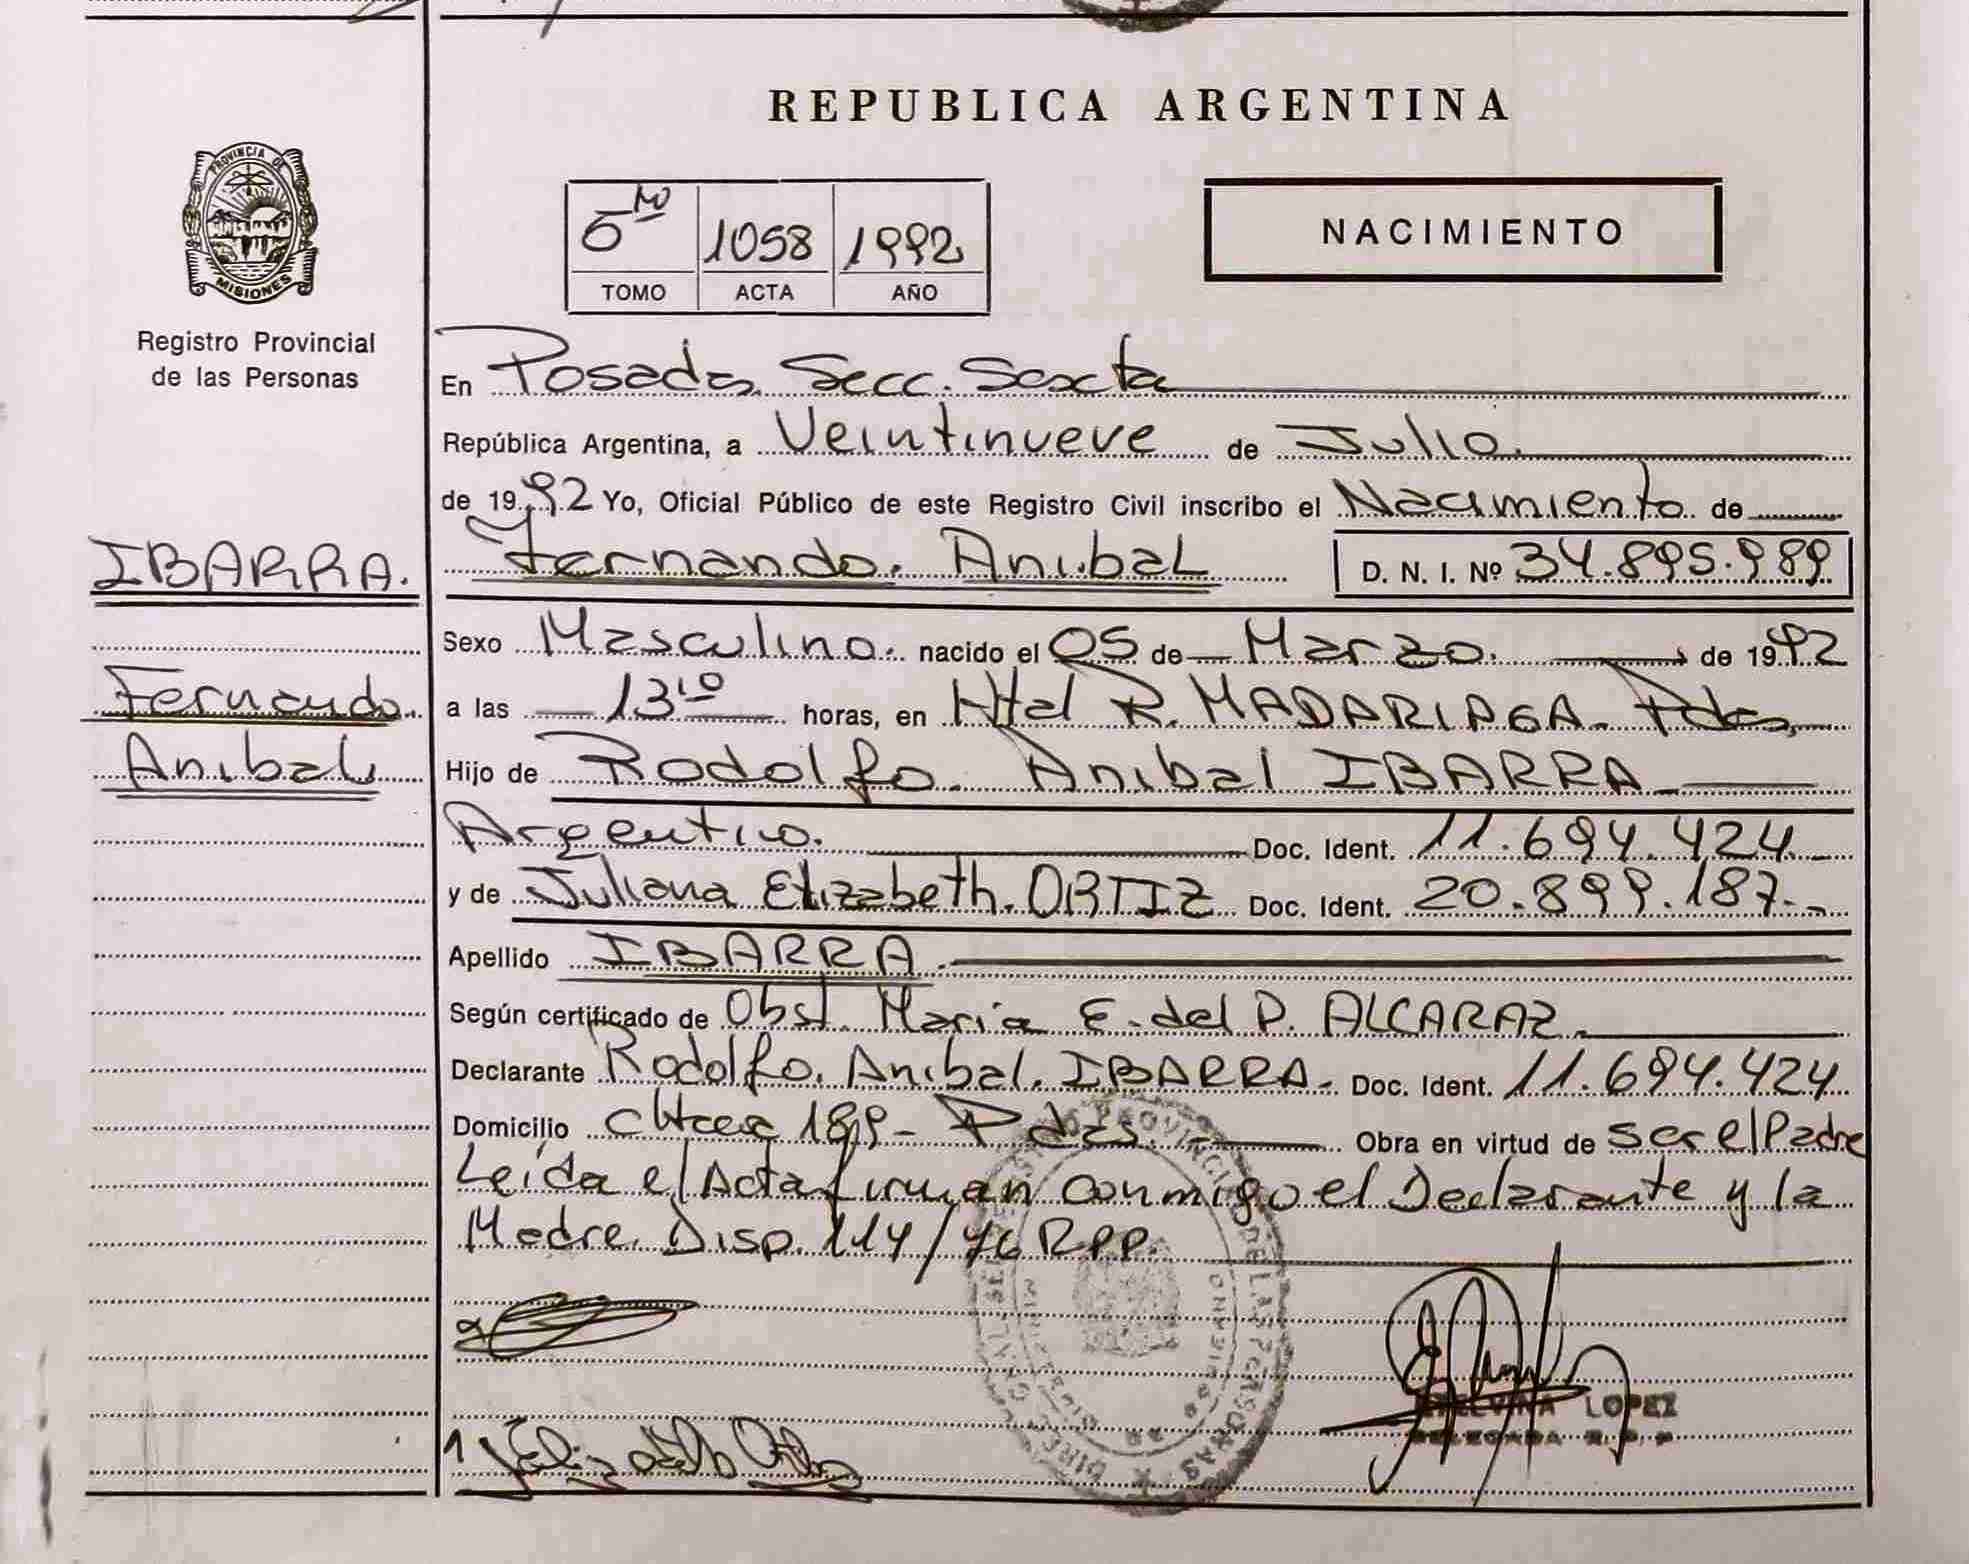 REPUBLICA ARGENTINA
PROVINCIA DE
MISIONES
Registro Provincial
de las Personas
IBARRA.
Fernando
Anibal
1058 1992
TOMO ACTA AÑO
NACIMIENTO
En Posadas Secc. Sexta
República Argentina, a Veintinueve de Julio
de 1992 Yo, Oficial Público de este Registro Civil inscribo el Nacimiento de
Fernando Anibal D. N. I. Nº 34.895.989
Sexo Masculino. nacido el 05 de Marzo. de 1992
a las 13,10 horas, en Htal R. MADARIAGA. Pdas,
Hijo de Rodolfo Anibal IBARRA
Argentino. Doc. Ident. 11.694.424
y de Juliana Elizabeth ORTIZ Doc. Ident. 20.899.187
Apellido IBARRA
Según certificado de Obst. Maria E. del P. ALCARAZ
Declarante Rodolfo Anibal IBARRA Doc. Ident. 11.694.424
Domicilio 189 - Pdas. Obra en virtud de ser el Padre
Leída el Acta firman conmigo el Declarante y la
Madre. Disp. 114/76 RPP.
LOPEZ
DELEGADA R.P.P